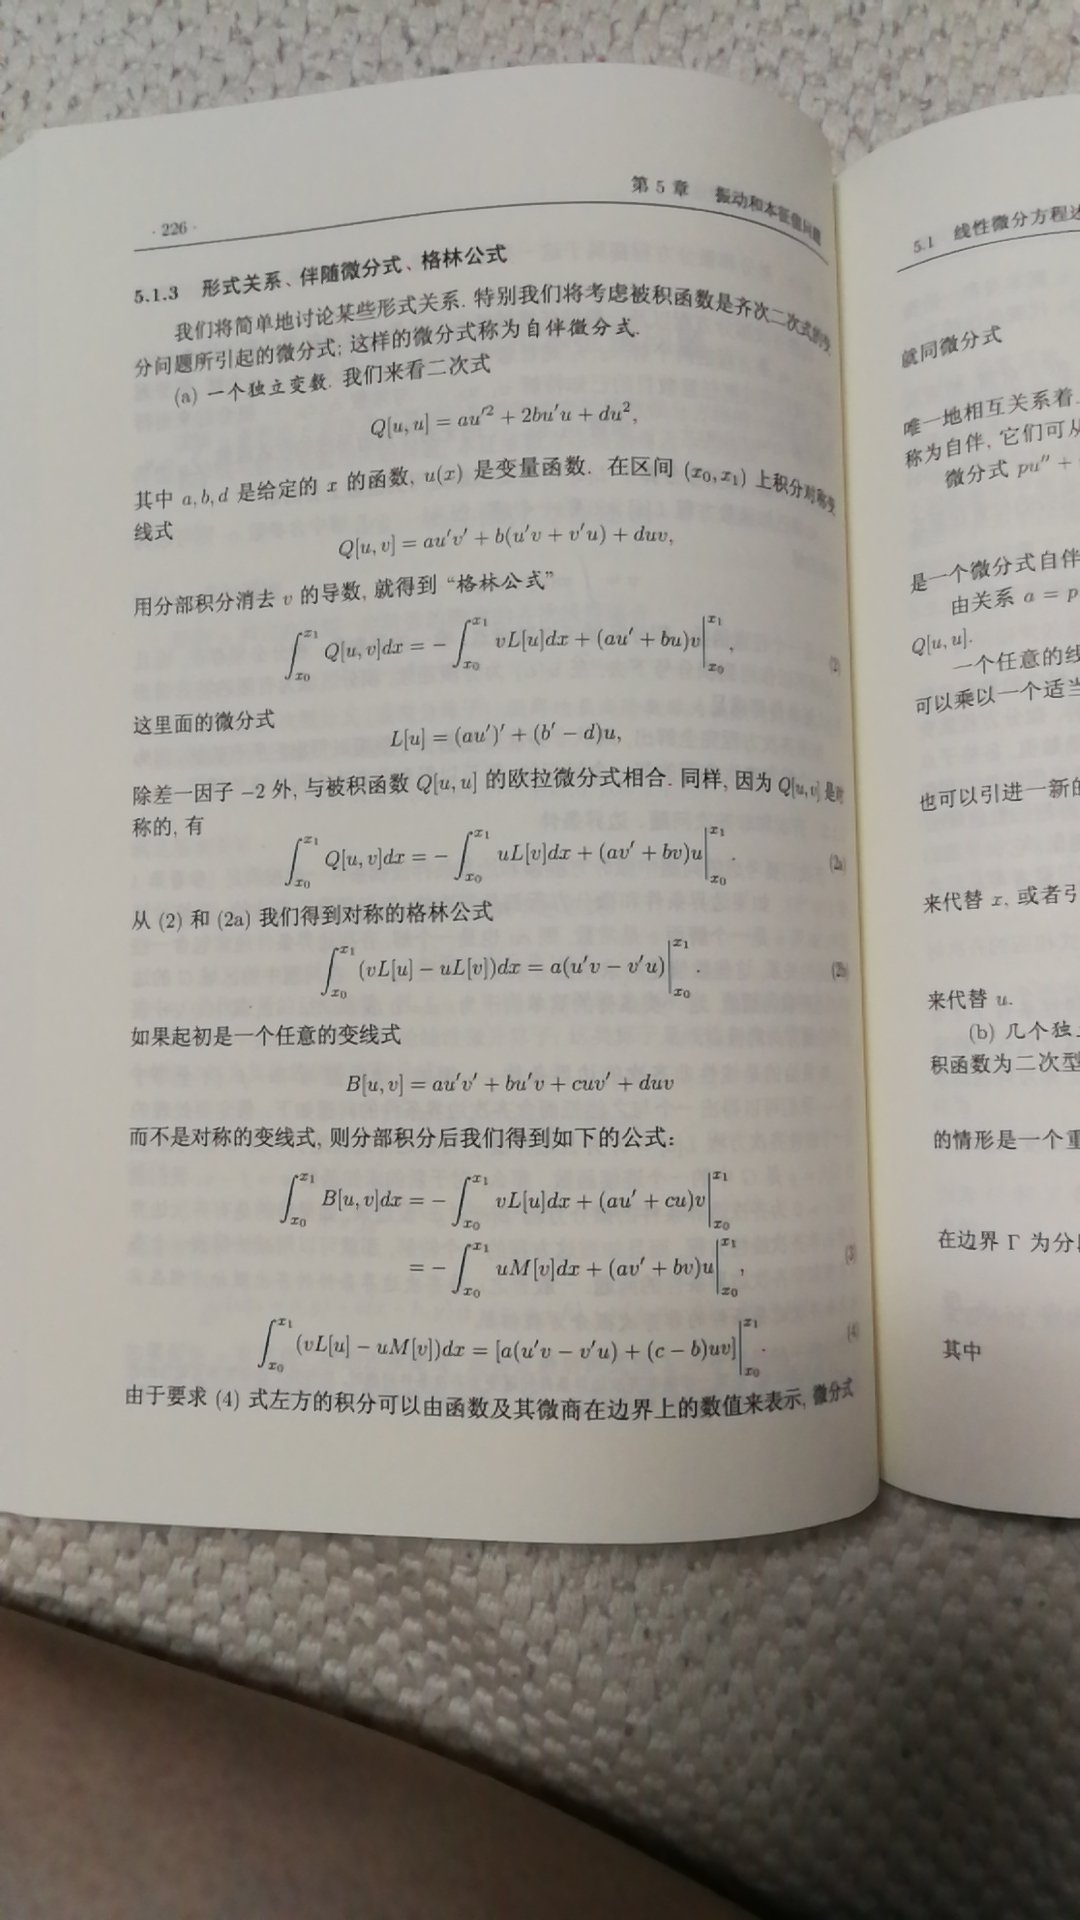 · 226 ·
第 5 章 振动和本征值问题
5.1.3 形式关系、伴随微分式、格林公式
我们将简单地讨论某些形式关系. 特别我们将考虑被积函数是齐次二次式的变
分问题所引起的微分式; 这样的微分式称为自伴微分式.
(a) 一个独立变数. 我们来看二次式
Q[u, u] = au′² + 2bu′u + du²,
其中 a, b, d 是给定的 x 的函数, u(x) 是变量函数. 在区间 (x₀, x₁) 上积分对称变
线式
Q[u, v] = au′v′ + b(u′v + v′u) + duv,
用分部积分消去 v 的导数, 就得到 “格林公式”
∫_{x₀}^{x₁} Q[u, v]dx = − ∫_{x₀}^{x₁} vL[u]dx + (au′ + bu)v|_{x₀}^{x₁}, (2)
这里面的微分式
L[u] = (au′)′ + (b′ − d)u,
除差一因子 −2 外, 与被积函数 Q[u, u] 的欧拉微分式相合. 同样, 因为 Q[u, v] 是对
称的, 有
∫_{x₀}^{x₁} Q[u, v]dx = − ∫_{x₀}^{x₁} uL[v]dx + (av′ + bv)u|_{x₀}^{x₁}. (2a)
从 (2) 和 (2a) 我们得到对称的格林公式
∫_{x₀}^{x₁} (vL[u] − uL[v])dx = a(u′v − v′u)|_{x₀}^{x₁}. (2b)
如果起初是一个任意的变线式
B[u, v] = au′v′ + bu′v + cuv′ + duv
而不是对称的变线式, 则分部积分后我们得到如下的公式:
∫_{x₀}^{x₁} B[u, v]dx = − ∫_{x₀}^{x₁} vL[u]dx + (au′ + cu)v|_{x₀}^{x₁}
= − ∫_{x₀}^{x₁} uM[v]dx + (av′ + bv)u|_{x₀}^{x₁}, (3)
∫_{x₀}^{x₁} (vL[u] − uM[v])dx = [a(u′v − v′u) + (c − b)uv]|_{x₀}^{x₁}. (4)
由于要求 (4) 式左方的积分可以由函数及其微商在边界上的数值来表示, 微分式
5.1 线性微分方程
就同微分式
唯一地相互关系着
称为自伴, 它们可从
微分式 pu″ +
是一个微分式自伴
由关系 a = p
Q[u, u].
一个任意的线
可以乘以一个适当
也可以引进一新的
来代替 x, 或者引
来代替 u.
(b) 几个独
积函数为二次型
的情形是一个重
在边界 Γ 为分
其中